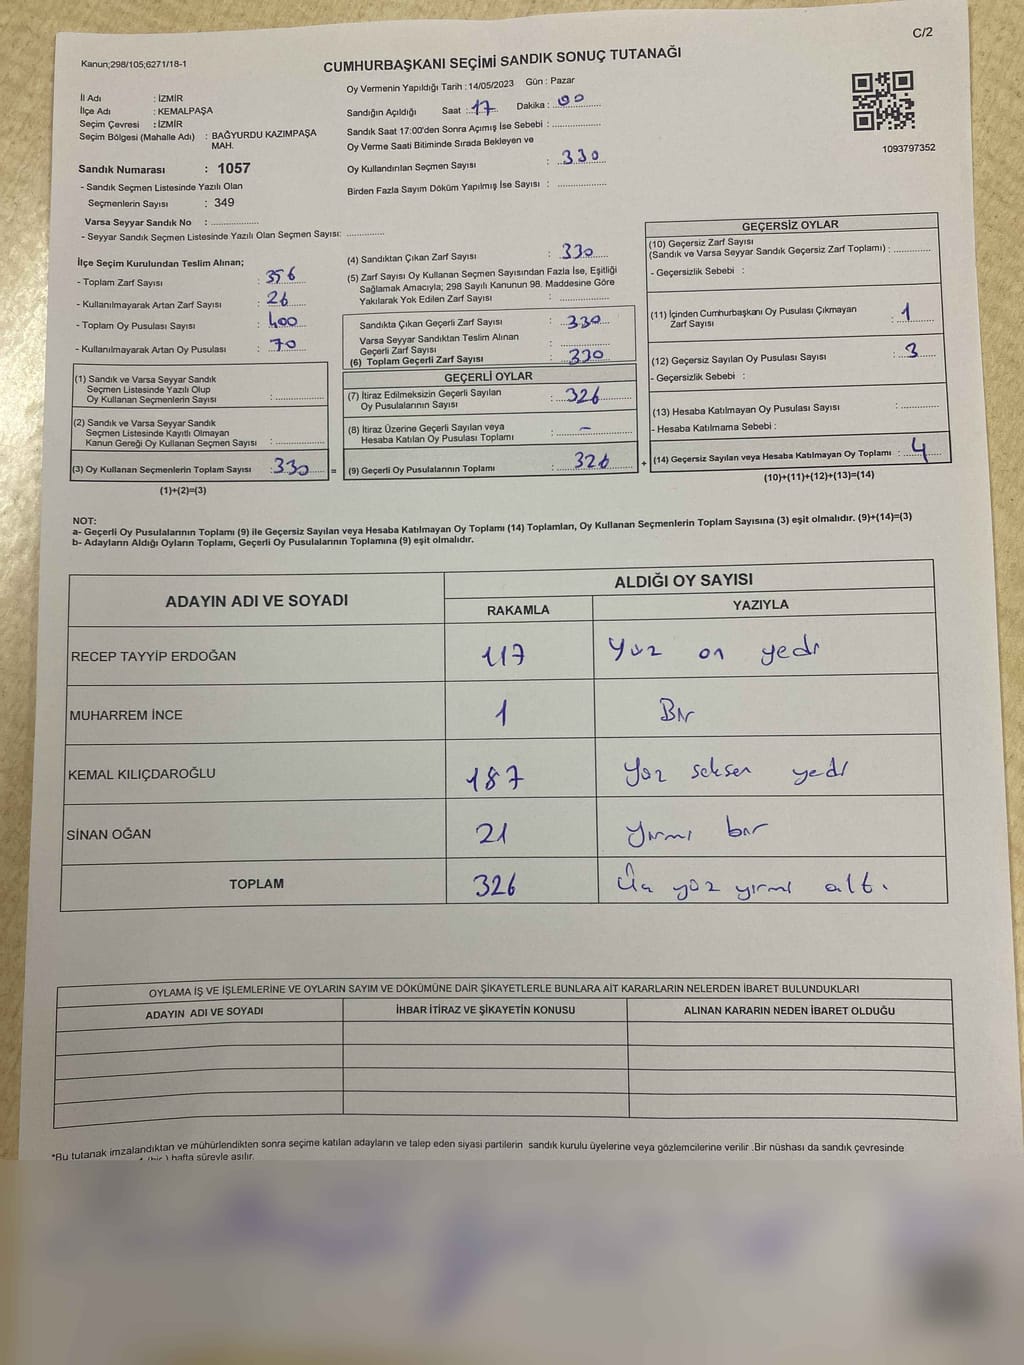 C/2
Kanun;298/105;6271/18-1
CUMHURBAŞKANI SEÇİMİ SANDIK SONUÇ TUTANAĞI
Oy Vermenin Yapıldığı Tarih : 14/05/2023 Gün : Pazar
İl Adı : İZMİR
İlçe Adı : KEMALPAŞA
Seçim Çevresi : İZMİR
Seçim Bölgesi (Mahalle Adı) : BAĞYURDU KAZIMPAŞA MAH.
Sandık Numarası : 1057
- Sandık Seçmen Listesinde Yazılı Olan
Seçmenlerin Sayısı : 349
Varsa Seyyar Sandık No : ..................
- Seyyar Sandık Seçmen Listesinde Yazılı Olan Seçmen Sayısı: ..............
Sandığın Açıldığı Saat : 17 Dakika : 00
Sandık Saat 17:00'den Sonra Açımış İse Sebebi : ..................
Oy Verme Saati Bitiminde Sırada Bekleyen ve
Oy Kullandırılan Seçmen Sayısı : 330
Birden Fazla Sayım Döküm Yapılmış İse Sayısı : ..................
1093797352
İlçe Seçim Kurulundan Teslim Alınan;
- Toplam Zarf Sayısı : 356
- Kullanılmayarak Artan Zarf Sayısı : 26
- Toplam Oy Pusulası Sayısı : 400
- Kullanılmayarak Artan Oy Pusulası : 70
(1) Sandık ve Varsa Seyyar Sandık
Seçmen Listesinde Yazılı Olup
Oy Kullanan Seçmenlerin Sayısı : ..................
(2) Sandık ve Varsa Seyyar Sandık
Seçmen Listesinde Kayıtlı Olmayan
Kanun Gereği Oy Kullanan Seçmen Sayısı : ..................
(3) Oy Kullanan Seçmenlerin Toplam Sayısı : 330 =
(1)+(2)=(3)
(4) Sandıktan Çıkan Zarf Sayısı : 330
(5) Zarf Sayısı Oy Kullanan Seçmen Sayısından Fazla İse, Eşitliği
Sağlamak Amacıyla; 298 Sayılı Kanunun 98. Maddesine Göre
Yakılarak Yok Edilen Zarf Sayısı : ..................
Sandıkta Çıkan Geçerli Zarf Sayısı : 330
Varsa Seyyar Sandıktan Teslim Alınan
Geçerli Zarf Sayısı : ..................
(6) Toplam Geçerli Zarf Sayısı : 330
GEÇERLİ OYLAR
(7) İtiraz Edilmeksizin Geçerli Sayılan
Oy Pusulalarının Sayısı : 326
(8) İtiraz Üzerine Geçerli Sayılan veya
Hesaba Katılan Oy Pusulası Toplamı : -
(9) Geçerli Oy Pusulalarının Toplamı : 326 +
GEÇERSİZ OYLAR
(10) Geçersiz Zarf Sayısı
(Sandık ve Varsa Seyyar Sandık Geçersiz Zarf Toplamı) : ..............
- Geçersizlik Sebebi :
(11) İçinden Cumhurbaşkanı Oy Pusulası Çıkmayan
Zarf Sayısı : 1
(12) Geçersiz Sayılan Oy Pusulası Sayısı : 3
- Geçersizlik Sebebi :
(13) Hesaba Katılmayan Oy Pusulası Sayısı : ..............
- Hesaba Katılmama Sebebi :
(14) Geçersiz Sayılan veya Hesaba Katılmayan Oy Toplamı : 4
(10)+(11)+(12)+(13)=(14)
NOT:
a- Geçerli Oy Pusulalarının Toplamı (9) ile Geçersiz Sayılan veya Hesaba Katılmayan Oy Toplamı (14) Toplamları, Oy Kullanan Seçmenlerin Toplam Sayısına (3) eşit olmalıdır. (9)+(14)=(3)
b- Adayların Aldığı Oyların Toplamı, Geçerli Oy Pusulalarının Toplamına (9) eşit olmalıdır.
ADAYIN ADI VE SOYADI ALDIĞI OY SAYISI
RAKAMLA YAZIYLA
RECEP TAYYİP ERDOĞAN 117 Yüz on yedi
MUHARREM İNCE 1 Bir
KEMAL KILIÇDAROĞLU 187 Yüz seksen yedi
SİNAN OĞAN 21 Yirmi bir
TOPLAM 326 Üç yüz yirmi altı
OYLAMA İŞ VE İŞLEMLERİNE VE OYLARIN SAYIM VE DÖKÜMÜNE DAİR ŞİKAYETLERLE BUNLARA AİT KARARLARIN NELERDEN İBARET BULUNDUKLARI
ADAYIN ADI VE SOYADI İHBAR İTİRAZ VE ŞİKAYETİN KONUSU ALINAN KARARIN NEDEN İBARET OLDUĞU
*Bu tutanak imzalandıktan ve mühürlendikten sonra seçime katılan adayların ve talep eden siyasi partilerin sandık kurulu üyelerine veya gözlemcilerine verilir .Bir nüshası da sandık çevresinde
(bir ) hafta süreyle asılır.